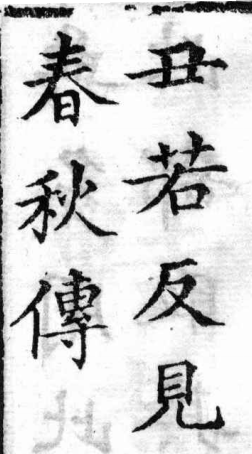 丑若反見
春秋傳